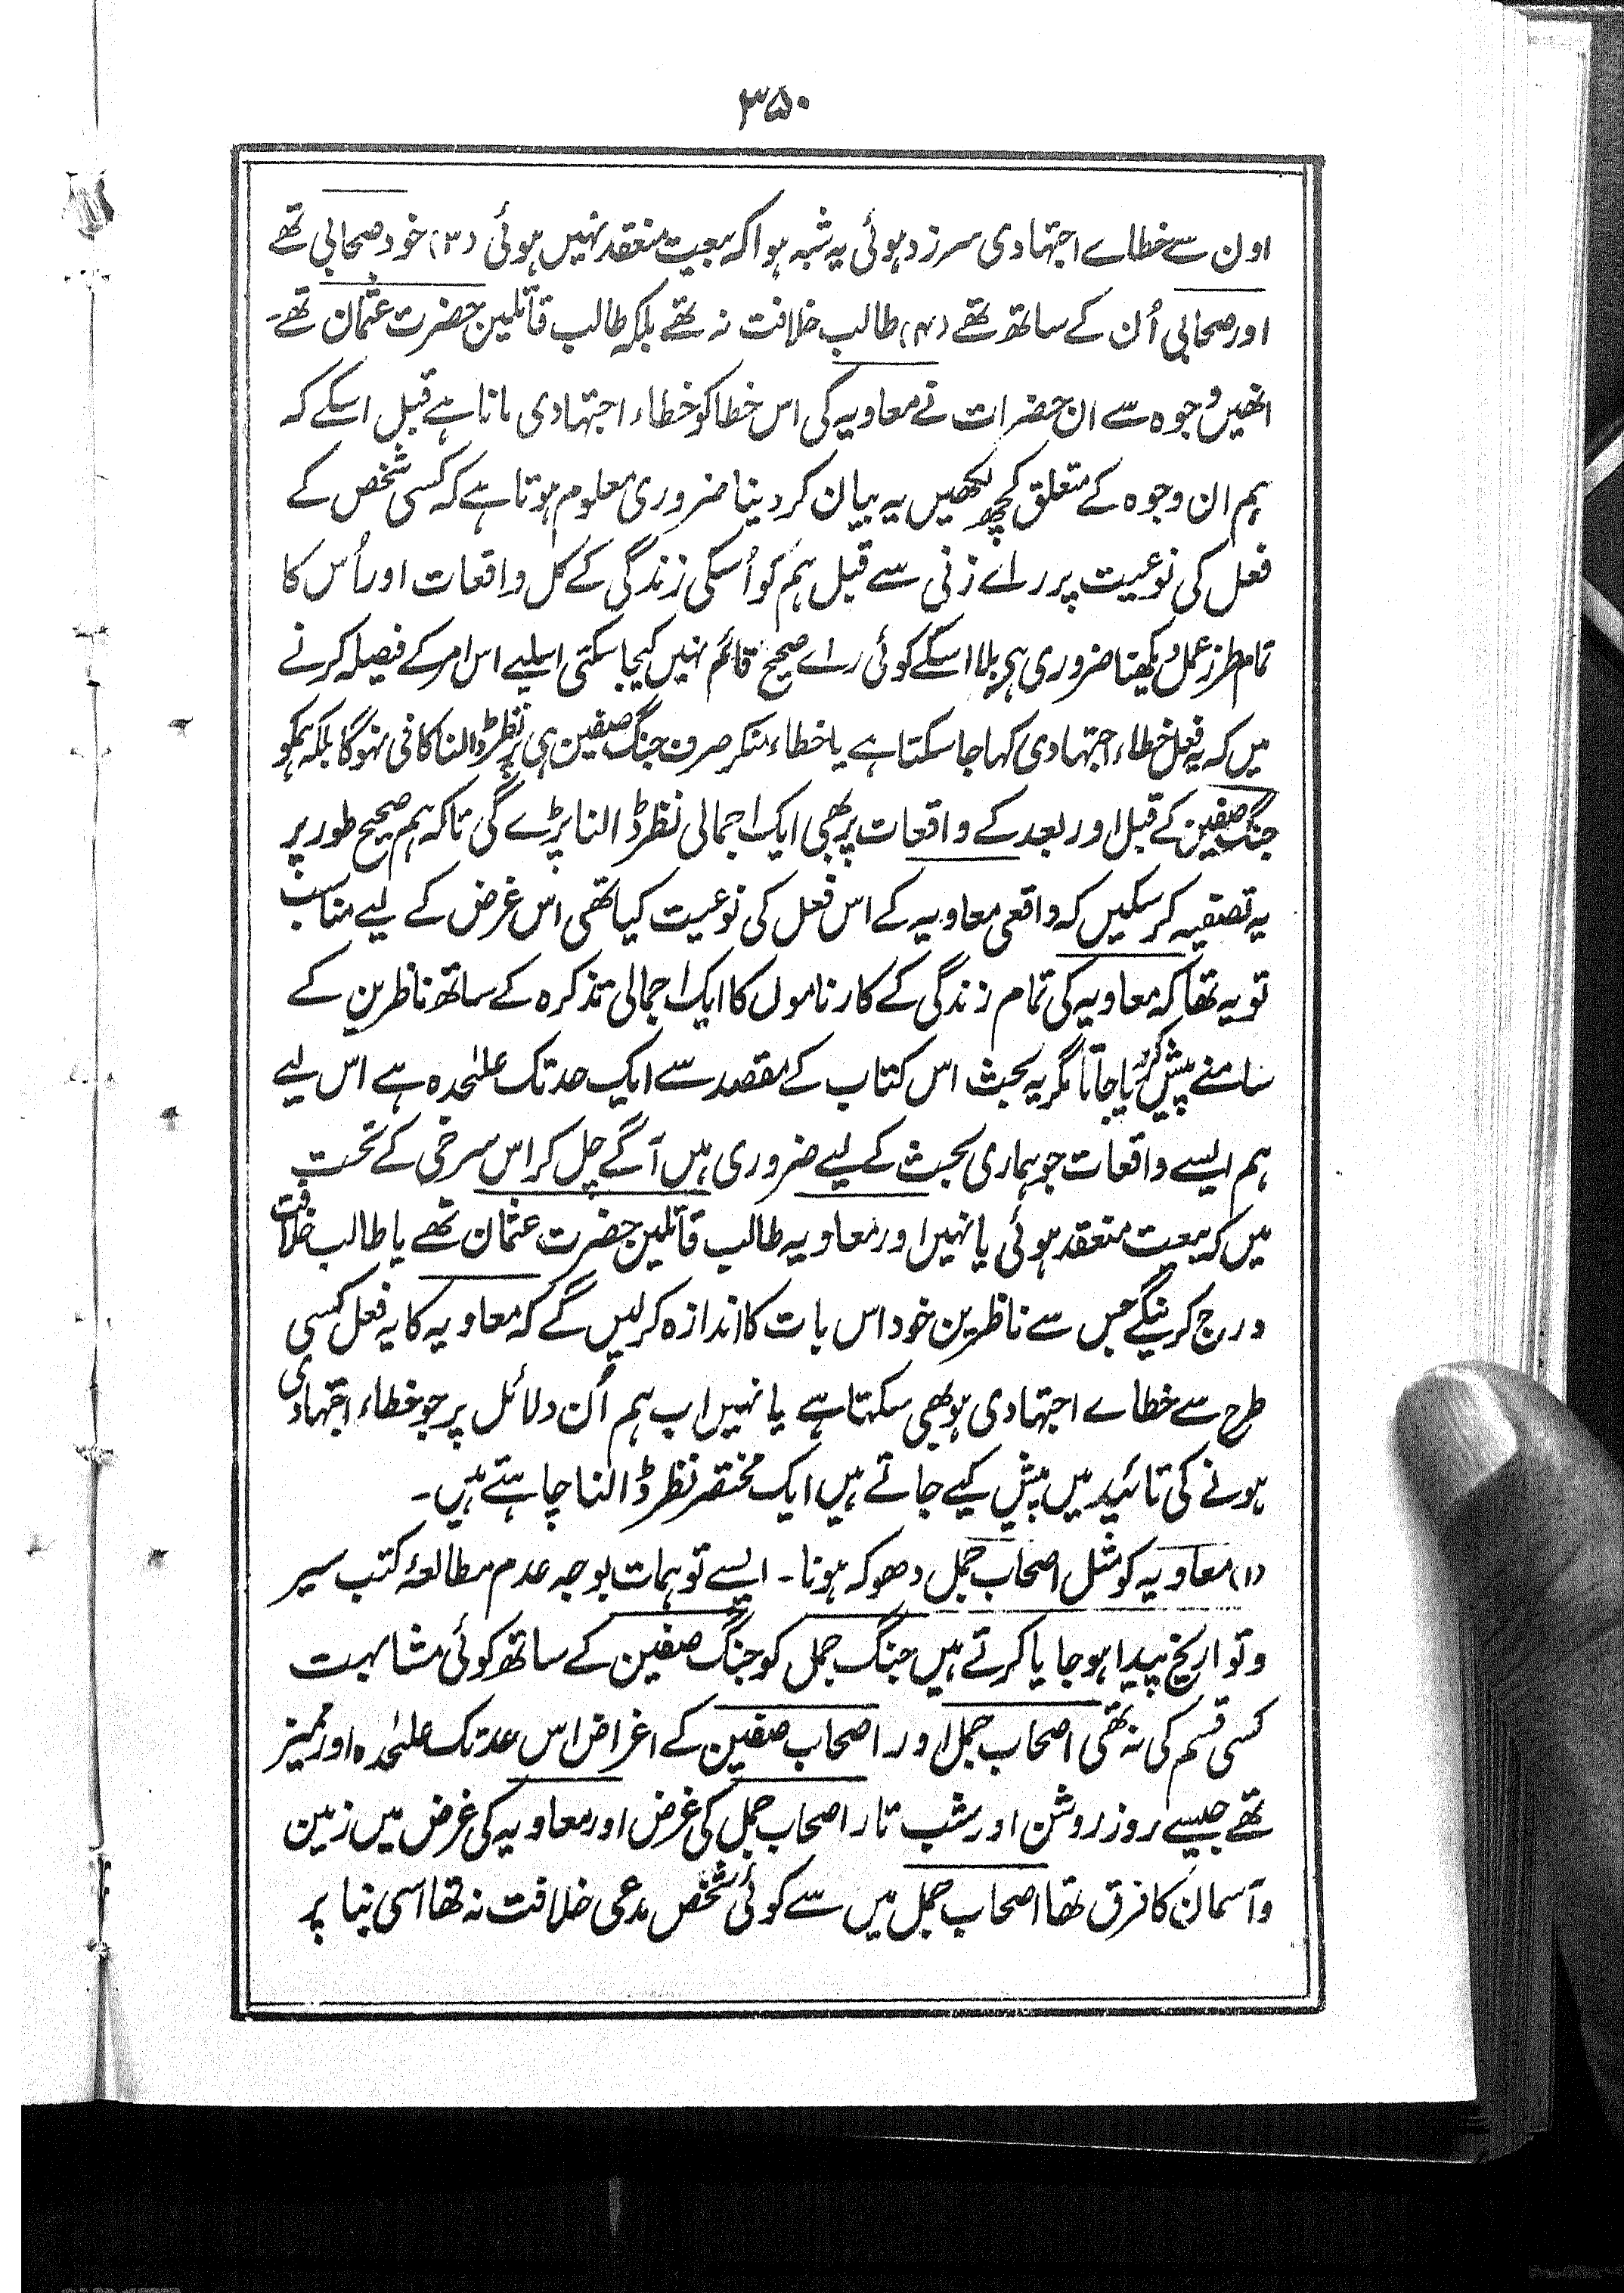 ۳۵۰
اون سے خطاے اجتہادی سرزد ہوئی یہ شبہ ہوا کہ بیعت منعقد نہیں ہوئی (۳) خود صحابی تھے
اور صحابی اُن کے ساتھ تھے (۴) طالب خلافت نہ تھے بلکہ طالب قاتلین حضرت عثمان تھے۔
انھیں وجوہ سے ان حضرات نے معاویہ کی اس خطا کو خطاء اجتہادی مانا ہے قبل اسکے کہ
ہم ان وجوہ کے متعلق کچھ لکھیں یہ بیان کر دینا ضروری معلوم ہوتا ہے کہ کسی شخص کے
فعل کی نوعیت پر راے زنی سے قبل ہم کو اُسکی زندگی کے کل واقعات اور اُس کا
تمام طرز عمل دیکھنا ضروری ہے بلا اسکے کوئی راے صحیح قائم نہیں کیجا سکتی اسلیے اس امر کے فیصلہ کرنے
میں کہ یہ فعل خطاء اجتہادی کہا جا سکتا ہے یا خطاء منکر صرف جنگ صفین ہی پر نظر ڈالنا کافی نہوگا بلکہ ہمکو
جنگ صفین کے قبل اور بعد کے واقعات پر بھی ایک اجمالی نظر ڈالنا پڑے گی تاکہ ہم صحیح طور پر
یہ تصفیہ کر سکیں کہ واقعی معاویہ کے اس فعل کی نوعیت کیا تھی اس غرض کے لیے مناسب
تو یہ تھا کہ معاویہ کی تمام زندگی کے کارناموں کا ایک اجمالی تذکرہ کے ساتھ ناظرین کے
سامنے پیش کر دیا جاتا مگر یہ بحث اس کتاب کے مقصد سے ایک حد تک علٰحدہ ہے اس لیے
ہم ایسے واقعات جو ہماری بحث کے لیے ضروری ہیں آگے چل کر اس سرخی کے تحت
میں کہ بیعت منعقد ہوئی یا نہیں اور معاویہ طالب قاتلین حضرت عثمان تھے یا طالب خلافت
درج کرینگے جس سے ناظرین خود اس بات کا اندازہ کر لیں گے کہ معاویہ کا یہ فعل کسی
طرح سے خطاے اجتہادی ہو بھی سکتا ہے یا نہیں اب ہم اُن دلائل پر جو خطاء اجتہادی
ہونے کی تائید میں پیش کیے جاتے ہیں ایک مختصر نظر ڈالنا چاہتے ہیں۔
(۱) معاویہ کو مثل اصحاب جمل دھوکہ ہونا۔ ایسے توہمات بوجہ عدم مطالعۂ کتب سیر
و تواریخ پیدا ہو جایا کرتے ہیں جنگ جمل کو جنگ صفین کے ساتھ کوئی مشابہت
کسی قسم کی نہ تھی اصحاب جمل اور اصحاب صفین کے اغراض اس حد تک علٰحدہ اور ممیز
تھے جیسے روز روشن اور شب تار اصحاب جمل کی غرض اور معاویہ کی غرض میں زمین
و آسمان کا فرق تھا اصحاب جمل میں سے کوئی شخص مدعی خلافت نہ تھا اسی بنا پر